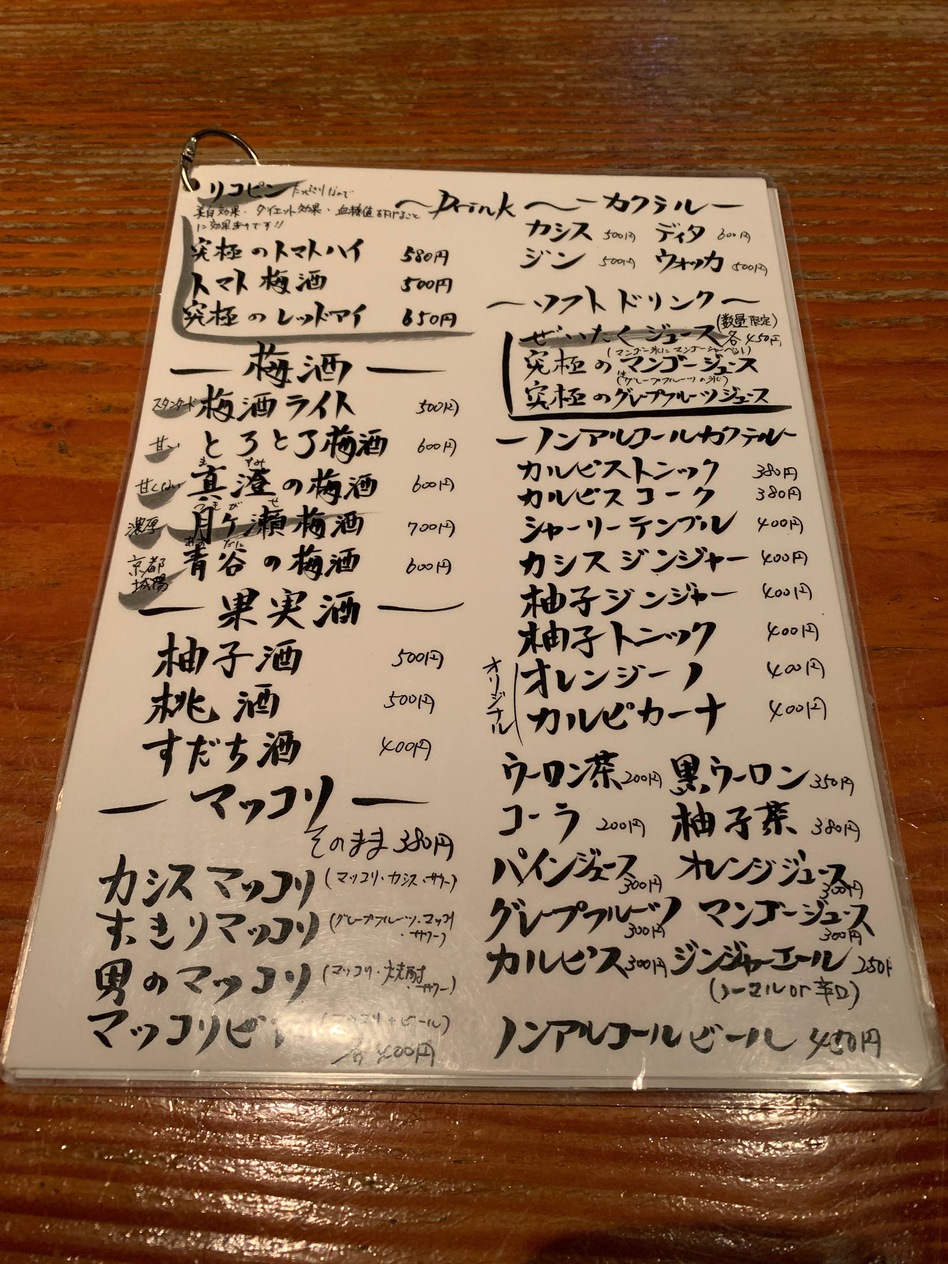 リコピン たっぷりなので
美白効果・ダイエット効果・血糖値を下げること
に効果ありです!!
究極のトマトハイ 580円
トマト梅酒 500円
究極のレッドアイ 650円
— 梅酒 —
スタンダード 梅酒ライト 500円
甘い とろとろ梅酒 600円
ますみ
甘くない 真澄の梅酒 600円
つきがせ
濃厚 月ケ瀬梅酒 700円
あおだに
京都城陽 青谷の梅酒 600円
— 果実酒 —
柚子酒 500円
桃酒 500円
すだち酒 400円
— マッコリ —
そのまま 380円
カシスマッコリ (マッコリ・カシス・サワー)
すっきりマッコリ (グレープフルーツ・マッコリ・サワー)
男のマッコリ (マッコリ・焼酎・サワー)
マッコリビ (マッコリ+ビール)
各400円
〜Drink〜
— カクテル —
カシス 500円 ディタ 600円
ジン 500円 ウォッカ 500円
〜ソフトドリンク〜
(数量限定)
ぜいたくジュース 各450円
(マンゴー氷にマンゴーシャーベット)
究極のマンゴージュース
(グレープフルーツの氷)
究極のグレープフルーツジュース
— ノンアルコールカクテル —
カルピストニック 380円
カルピスコーク 380円
シャーリーテンプル 400円
カシスジンジャー 400円
柚子ジンジャー 400円
柚子トニック 400円
オリジナル
オレンジーノ 400円
カルピカーナ 400円
ウーロン茶 200円 黒ウーロン 350円
コーラ 200円 柚子茶 380円
パインジュース 300円 オレンジジュース 300円
グレープフルーツ 300円 マンゴージュース 300円
カルピス 300円 ジンジャーエール 250円
(ノーマル or 辛口)
ノンアルコールビール 450円